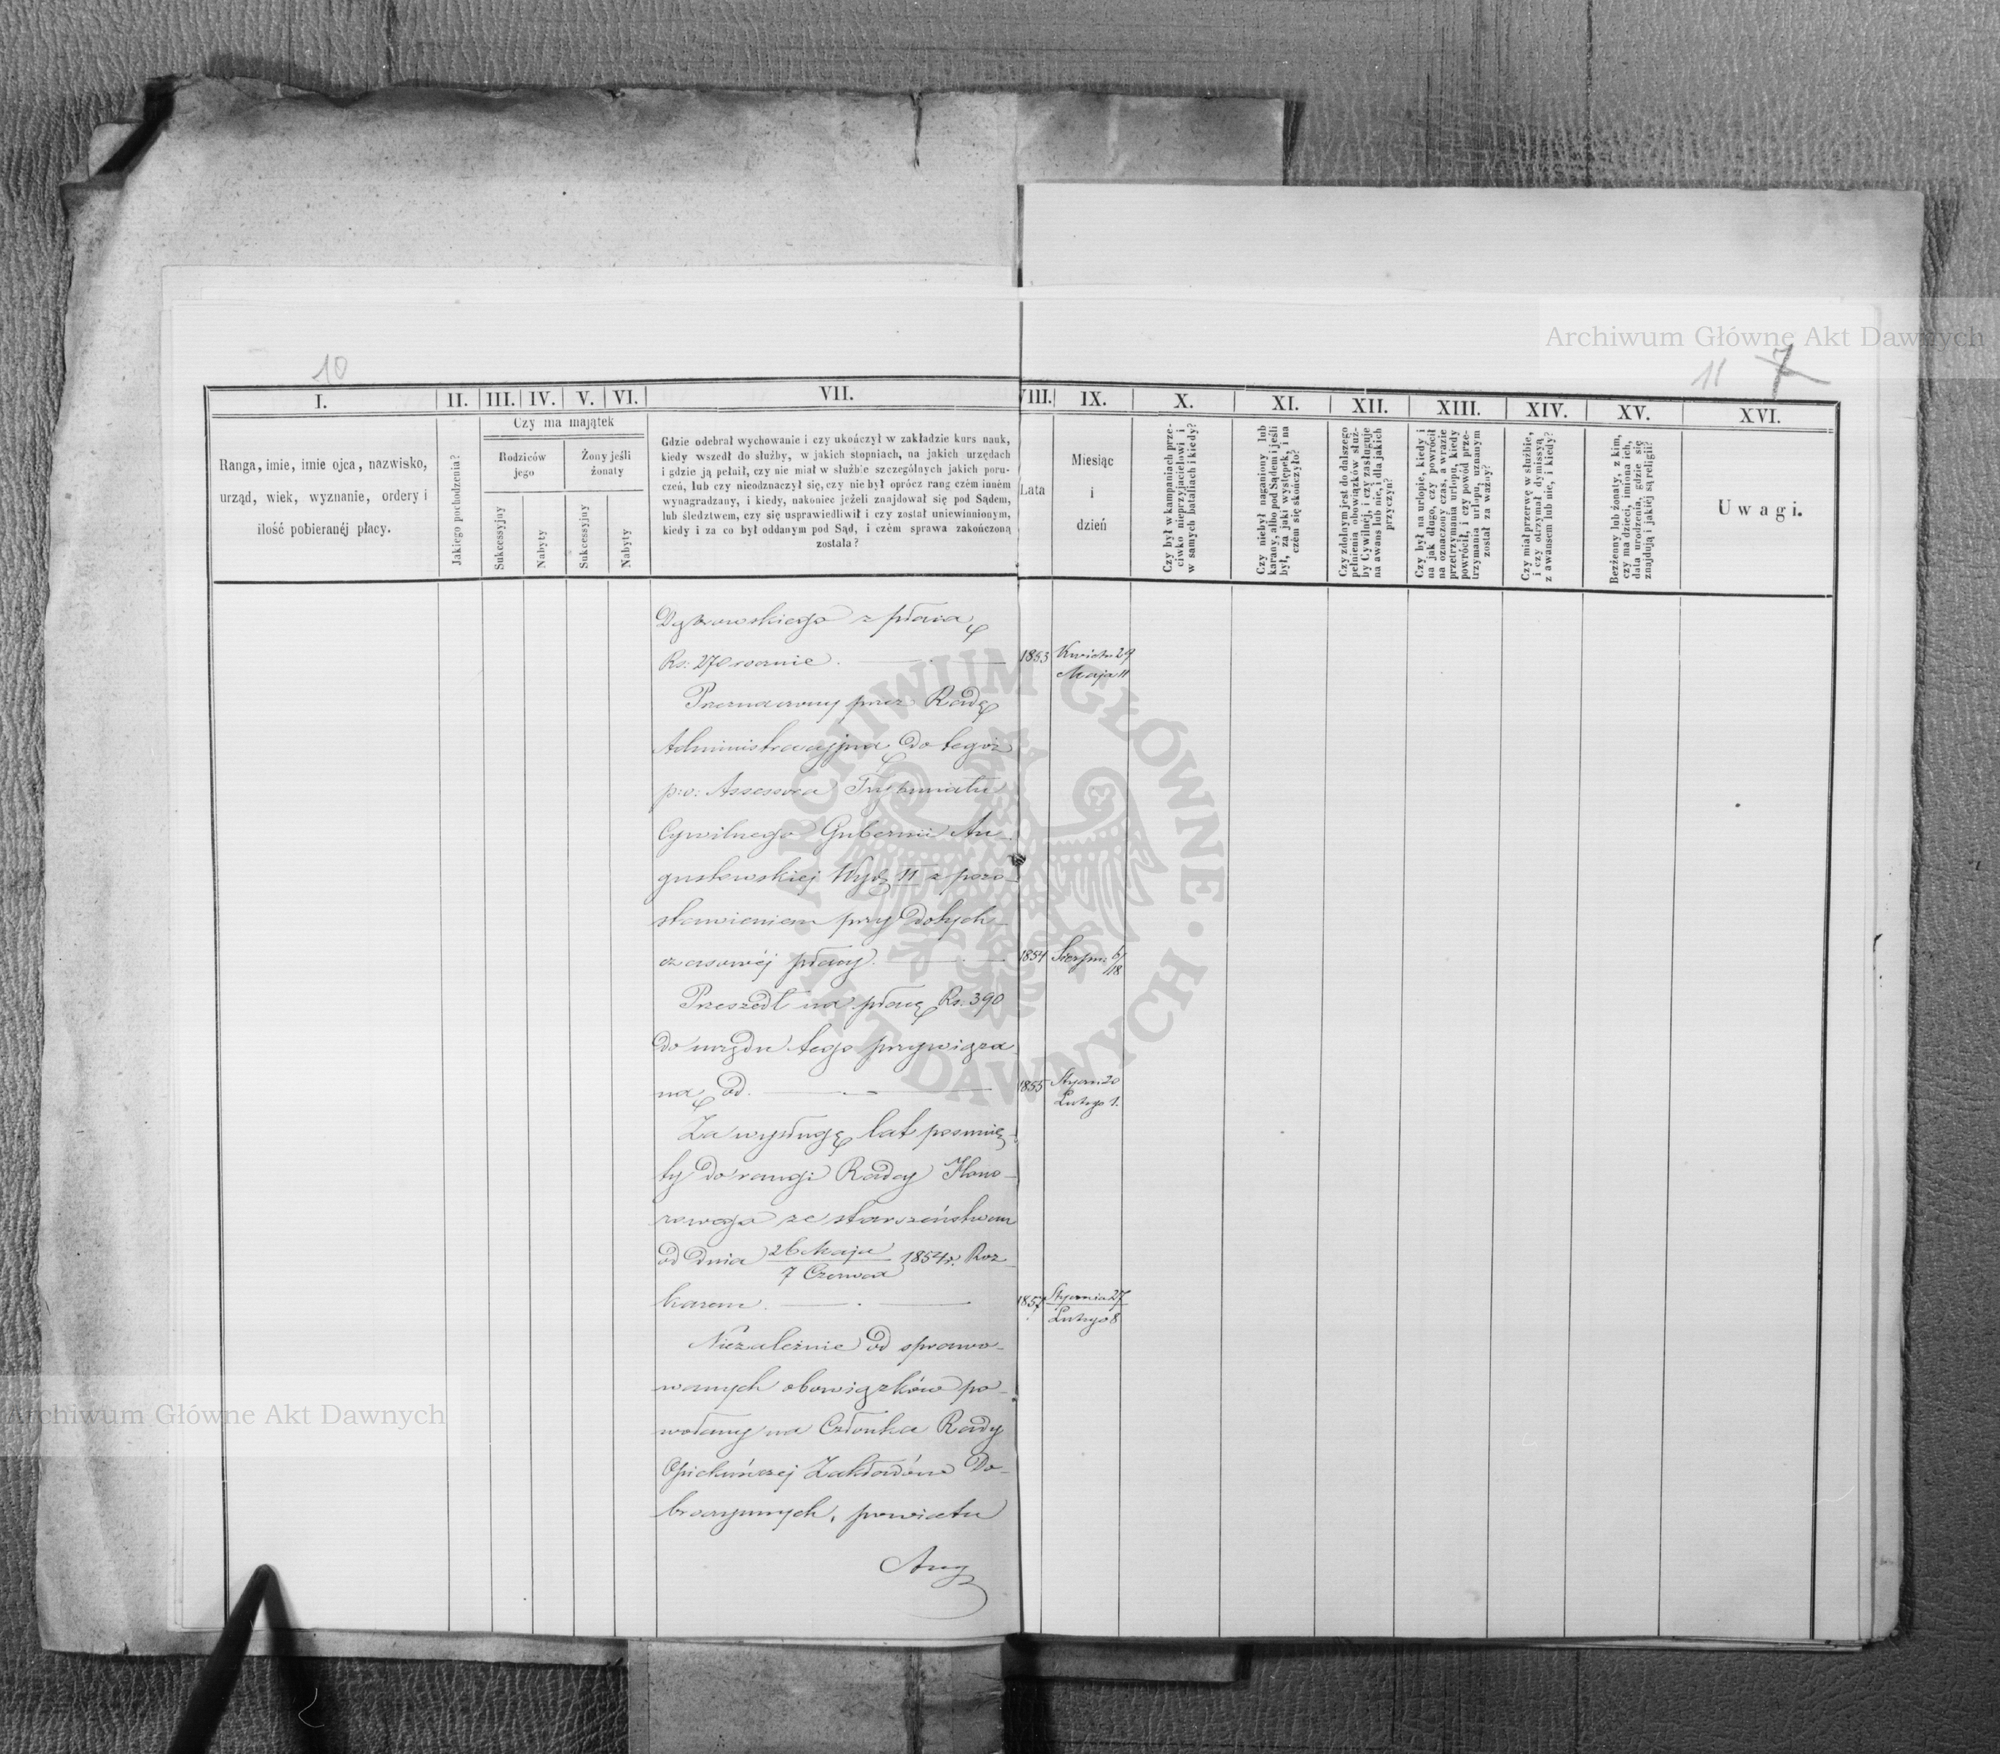 Archiwum Główne Akt Dawnych
10
11 7
I. II. III. IV. V. VI. VII. VIII. IX. X. XI. XII. XIII. XIV. XV. XVI.
Ranga, imie, imie ojca, nazwisko,
urząd, wiek, wyznanie, ordery i
ilość pobieranéj płacy.
Jakiego pochodzenia?
Czy ma majątek
Rodziców
jego
Żony jeśli
żonaty
Sukcessyjny
Nabyty
Sukcessyjny
Nabyty
Gdzie odebrał wychowanie i czy ukończył w zakładzie kurs nauk,
kiedy wszedł do służby, w jakich stopniach, na jakich urzędach
i gdzie ją pełnił, czy nie miał w służbie szczególnych jakich poru-
czeń, lub czy nieodznaczył się, czy nie był oprócz rang czém inném
wynagradzany, i kiedy, nakoniec jeżeli znajdował się pod Sądem,
lub śledztwem, czy się usprawiedliwił i czy został uniewinnionym,
kiedy i za co był oddanym pod Sąd, i czém sprawa zakończoną
została?
Lata
Miesiąc
i
dzień
Czy był w kampaniach prze-
ciwko nieprzyjacielowi i
w samych bataliach i kiedy?
Czy niebył naganiony lub
karany, albo pod Sądem i jeśli
był, za jaki występek, i na
czém się skończyło?
Czy zdolnym jest do dalszego
pełnienia obowiązków służ-
by Cywilnej, i czy zasługuje
na awans lub nie, i dla jakich
przyczyn?
Czy był na urlopie, kiedy i
na jak długo, czy powrócił
na oznaczony czas, a w razie
przetrzymania urlopu, kiedy
powrócił, i czy powód prze-
trzymania urlopu, uznanym
został za ważny?
Czy miał przerwę w służbie,
i czy otrzymał dymissyą
z awansem lub nie, i kiedy?
Bezżenny lub żonaty, z kim,
czy ma dzieci, imiona ich,
data urodzenia, gdzie się
znajdują i jakiéj są religii?
Uwagi.
Dąbrowskiego z płacą
Rs: 270 rocznie. 1853 Kwietn 29
Maja 11
Przeznaczony przez Radę
Administracyjną do tegoż
p.o: Assessora Trybunału
Cywilnego Gubernii Au-
gustowskiej Wydz II z pozo-
stawieniem przy dotych-
czasowéj płacy. 1854 Sierpn: 6/18
Przeszedł na płacę Rs. 390
do urzędu tego przywiąza-
ną od. 1855 Stycz 20
Lutego 1.
Za wysługę lat posunię-
ty do rangi Radcy Hono-
rowego ze starszeństwem
od dnia 26 Maja
7 Czerwca 1854 r. Roz-
kazem. 1857 Stycznia 27
Lutego 8
Niezależnie od sprawo-
wanych obowiązków po-
wołany na Członka Rady
Opiekuńczej Zakładów Do-
broczynnych, powiatu
Aug
ARCHIWUM GŁÓWNE AKT DAWNYCH
Archiwum Główne Akt Dawnych